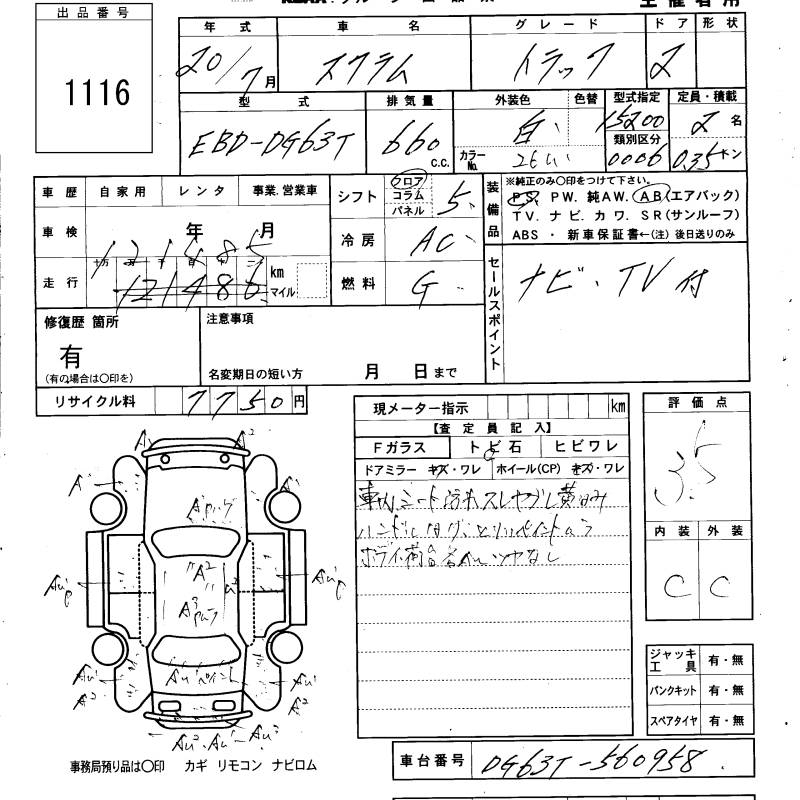 出品番号
1116
年式 車名 グレード ドア 形状
20/7月 スクラム トラック 2
型式 排気量 外装色 色替 型式指定 定員・積載
EBD-DG63T 660 c.c. 白 カラーNo. 26U 15200 類別区分 0006 2名 0.35トン
車歴 自家用 レンタ 事業.営業車 シフト フロア コラム パネル 5
装備品 ※純正のみ○印をつけて下さい。
PS. PW. 純AW. AB(エアバック)
TV. ナビ. カワ. SR(サンルーフ)
ABS ・ 新車保証書←(注) 後日送りのみ
車検 年 月 冷房 AC
121485
走行 十万 万 千 百 十 一 121486 km マイル 燃料 G
セールスポイント ナビ、TV付
修復歴 箇所 注意事項
有
(有の場合は○印を) 名変期日の短い方 月 日まで
リサイクル料 7750円
現メーター指示 km
【査定員記入】
Fガラス トビ石 ヒビワレ
ドアミラー キズ・ワレ ホイール(CP) キズ・ワレ
車内シート汚れスレヤブレ黄ばみ
評価点
3.5
内装 外装
C C
A A²
A'
A²
A³
AU' AU'
A² A²
AU²、AU'-AU²
ジャッキ 工具 有・無
パンクキット 有・無
スペアタイヤ 有・無
車台番号 DG63T-560958
事務局預り品は○印 カギ リモコン ナビロム